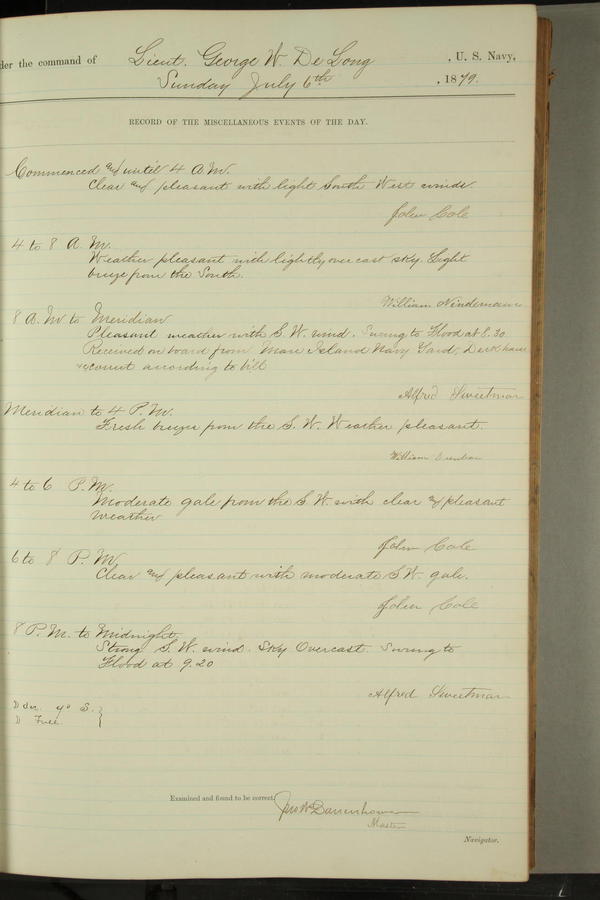 der the command of Lieut. George W. De Long , U. S. Navy,
Sunday July 6th , 1879.
RECORD OF THE MISCELLANEOUS EVENTS OF THE DAY.
Commenced and until 4 A.M.
Clear and pleasant with light South West winds.
John Cole
4 to 8 A. M.
Weather pleasant with lightly overcast sky. Light
breeze from the South.
William Nindemann
8 A.M. to Meridian
Pleasant weather with S.W. wind. Swung to Flood at 8.30
Received on board from Mare Island Navy Yard,
account according to bill
Alfred Sweetman
Meridian to 4 P.M.
Fresh breeze from the S.W. Weather pleasant.
William
4 to 6 P.M.
Moderate gale from the S.W. with clear and pleasant
weather
John Cole
6 to 8 P.M.
Clear and pleasant with moderate SW. gale.
John Cole
8 P.M. to Midnight
Strong S.W. wind. Sky Overcast. Swung to
Flood at 9.20
Alfred Sweetman
40 S.
Examined and found to be correct. Jno W Danenhower
Master
Navigator.